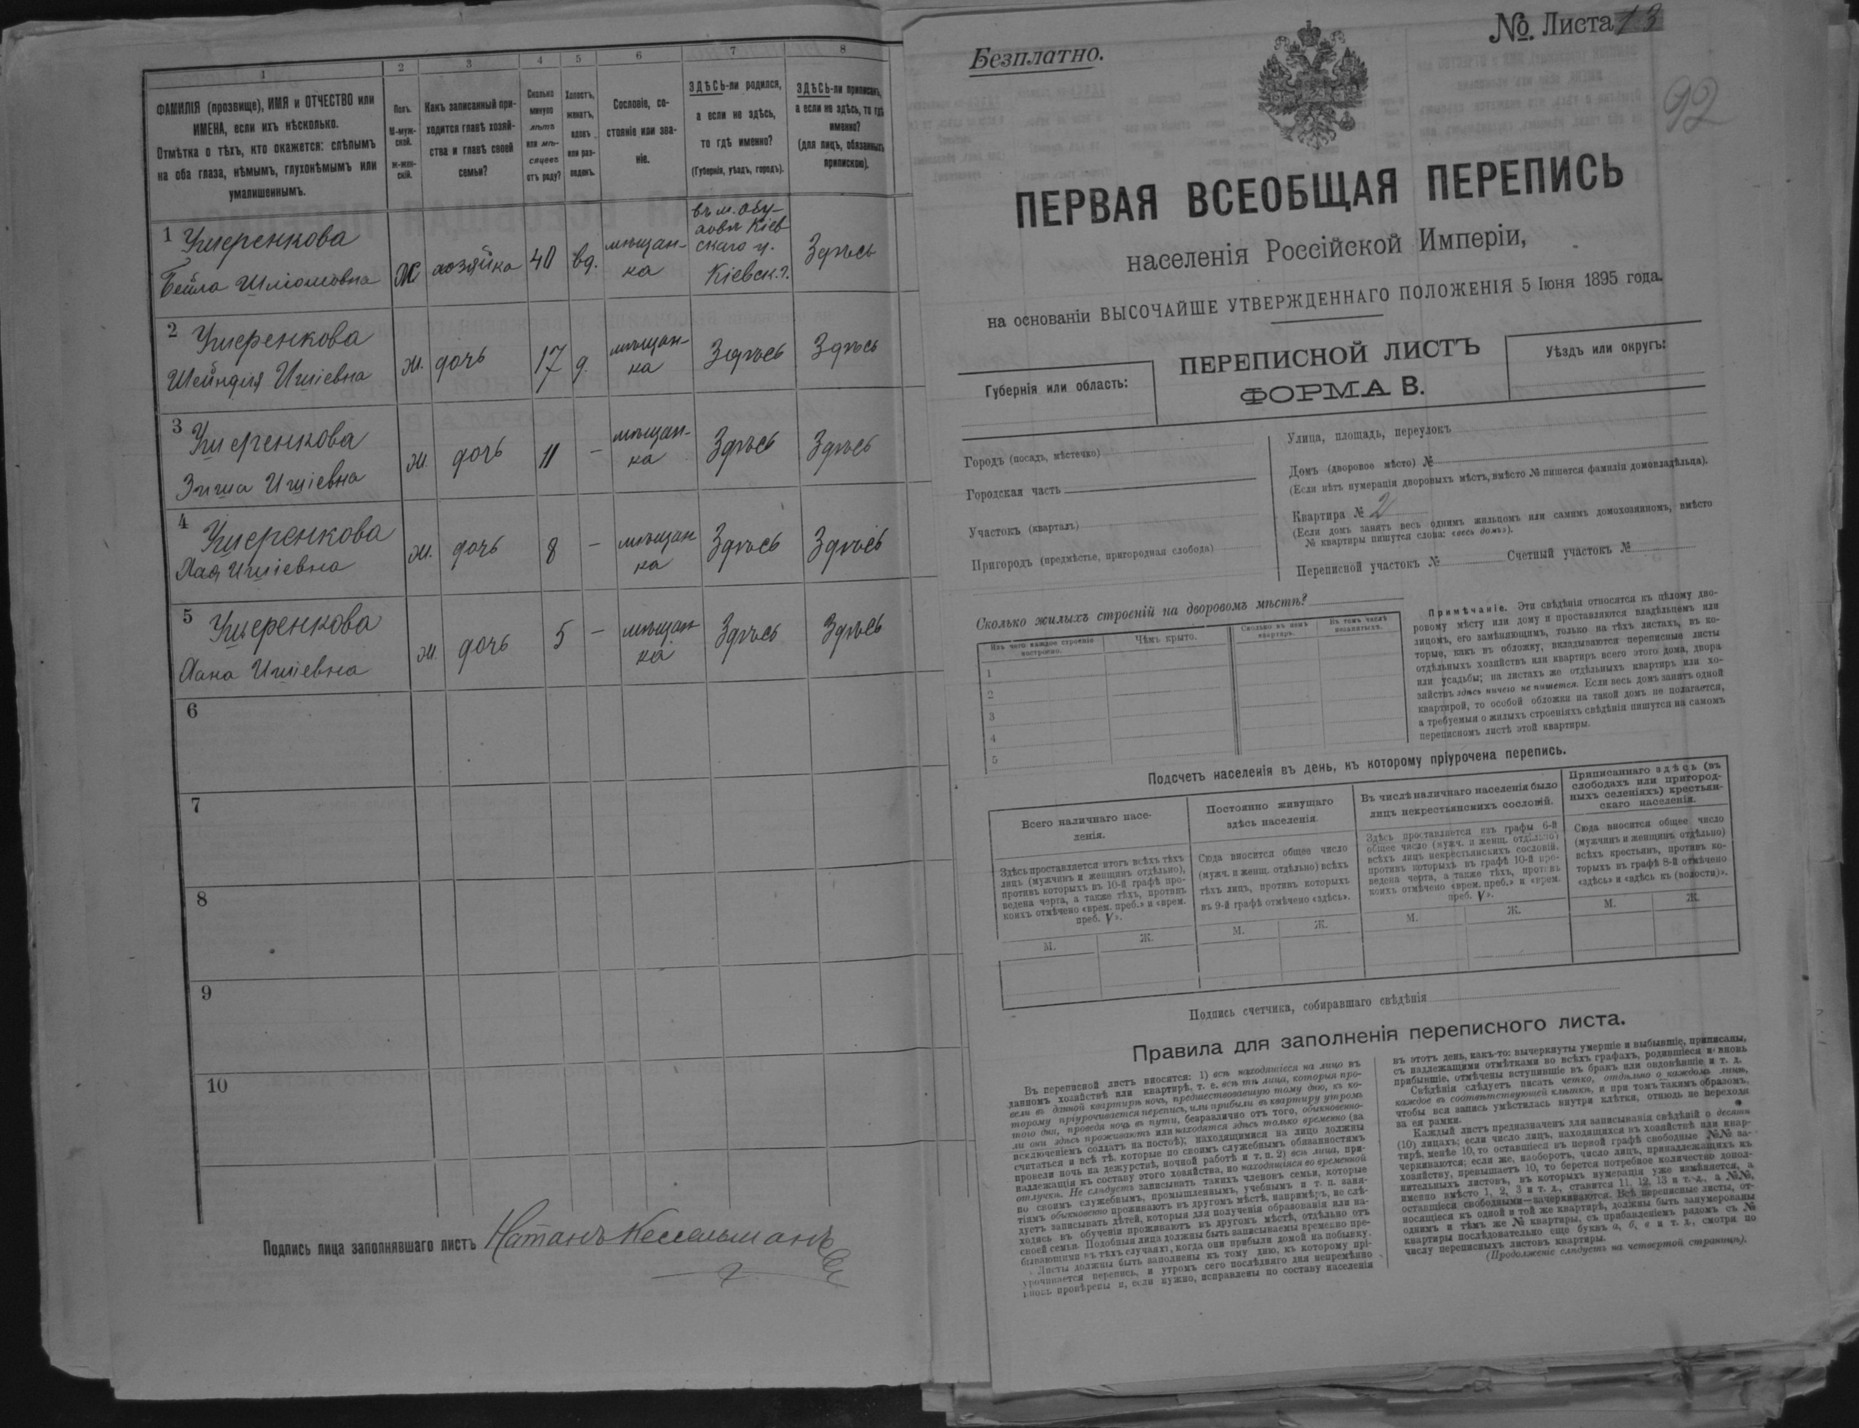 1 2 3 4 5 6 7 8
ФАМИЛІЯ (прозвище), ИМЯ и ОТЧЕСТВО или
ИМЕНА, если ихъ нѣсколько.
Отмѣтка о тѣхъ, кто окажется: слѣпымъ
на оба глаза, нѣмымъ, глухонѣмымъ или
умалишеннымъ.
Полъ.
М-муж-
ской.
Ж-жен-
скій.
Какъ записанный при-
ходится главѣ хозяй-
ства и главѣ своей
семьи?
Сколько
минуло
лѣтъ
или мѣ-
сяцевъ
отъ роду?
Холостъ,
женатъ,
вдовъ
или раз-
веденъ.
Сословіе, со-
стояніе или зва-
ніе.
ЗДѢСЬ-ли родился,
а если не здѣсь,
то гдѣ именно?
(Губернія, уѣздъ, городъ).
ЗДѢСЬ-ли приписанъ,
а если не здѣсь, то гдѣ
именно?
(для лицъ, обязанныхъ
припискою).
1 Ушеренкова
Бейла Шліомовна
Ж хозяйка 40 вд. мѣщан-
ка
въ м. Обу-
ховѣ Кіев-
скаго у.
Кіевск. г.
Здѣсь
2 Ушеренкова
Шейндля Ишіевна
ж. дочь 17 д. мѣщан-
ка
Здѣсь Здѣсь
3 Ушеренкова
Ишіевна
ж. дочь 11 – мѣщан-
ка
Здѣсь Здѣсь
4 Ушеренкова
Хая Ишіевна
ж. дочь 8 – мѣщан
ка
Здѣсь Здѣсь
5 Ушеренкова
Хана Ишіевна
ж. дочь 5 – мѣщан
ка
Здѣсь Здѣсь
6
7
8
9
10
Подпись лица заполнявшаго листъ Натанъ Кессельманъ
Безплатно.
№ Листа 13
92
ПЕРВАЯ ВСЕОБЩАЯ ПЕРЕПИСЬ
населенія Россійской Имперіи,
на основаніи ВЫСОЧАЙШЕ УТВЕРЖДЕННАГО ПОЛОЖЕНІЯ 5 Іюня 1895 года.
Губернія или область:
ПЕРЕПИСНОЙ ЛИСТЪ
ФОРМА В.
Уѣздъ или округъ:
Городъ (посадъ, мѣстечко)
Городская часть
Участокъ (кварталъ)
Пригородъ (предмѣстье, пригородная слобода)
Улица, площадь, переулокъ
Домъ (дворовое мѣсто) №
(Если нѣтъ нумераціи дворовыхъ мѣстъ, вмѣсто № пишется фамилія домовладѣльца).
Квартира № 2
(Если домъ занятъ весь однимъ жильцомъ или самимъ домохозяиномъ, вмѣсто
№ квартиры пишутся слова: «весь домъ»).
Переписной участокъ № Счетный участокъ №
Сколько жилыхъ строеній на дворовомъ мѣстѣ?
Изъ чего каждое строеніе
построено.
Чѣмъ крыто.
Сколько въ немъ
квартиръ.
Въ томъ числѣ
незанятыхъ.
1
2
3
4
5
Примѣчаніе. Эти свѣдѣнія относятся къ цѣлому дво-
ровому мѣсту или дому и проставляются владѣльцемъ или
лицомъ, его замѣняющимъ, только на тѣхъ листахъ, въ ко-
торые, какъ въ обложку, вкладываются переписные листы
отдѣльныхъ хозяйствъ или квартиръ всего этого дома, двора
или усадьбы; на листахъ же отдѣльныхъ квартиръ или хо-
зяйствъ здѣсь ничего не пишется. Если весь домъ занятъ одной
квартирой, то особой обложки на такой домъ не полагается,
а требуемыя о жилыхъ строеніяхъ свѣдѣнія пишутся на самомъ
переписномъ листѣ этой квартиры.
Подсчетъ населенія въ день, къ которому пріурочена перепись.
Всего наличнаго насе-
ленія.
Постоянно живущаго
здѣсь населенія.
Въ числѣ наличнаго населенія было
лицъ некрестьянскихъ сословій.
Приписаннаго здѣсь (въ
слободахъ или пригород-
ныхъ селеніяхъ) крестьян-
скаго населенія.
Здѣсь проставляется итогъ всѣхъ тѣхъ
лицъ (мужчинъ и женщинъ отдѣльно),
противъ которыхъ въ 10-й графѣ про-
ведена черта, а также тѣхъ, противъ
коихъ отмѣчено «врем. преб.» и «врем.
преб. V».
Сюда вносится общее число
(мужч. и женщ. отдѣльно) всѣхъ
тѣхъ лицъ, противъ которыхъ
въ 9-й графѣ отмѣчено «здѣсь».
Здѣсь проставляется изъ графы 6-й
общее число (мужч. и женщ. отдѣльно)
всѣхъ лицъ некрестьянскихъ сословій,
противъ которыхъ въ графѣ 10-й про-
ведена черта, а также тѣхъ, противъ
коихъ отмѣчено «врем. преб.» и «врем.
преб. V».
Сюда вносится общее число
(мужчинъ и женщинъ отдѣльно)
всѣхъ крестьянъ, противъ ко-
торыхъ въ графѣ 8-й отмѣчено
«здѣсь» и «здѣсь къ (волости)».
М. Ж. М. Ж. М. Ж. М. Ж.
Подпись счетчика, собиравшаго свѣдѣнія
Правила для заполненія переписного листа.
Въ переписной листъ вносятся: 1) всѣ находящіеся на лицо въ
данномъ хозяйствѣ или квартирѣ, т. е. всѣ тѣ лица, которыя про-
вели въ данной квартирѣ ночь, предшествовавшую тому дню, къ ко-
торому пріурочивается перепись, или прибыли въ квартиру утромъ
того дня, проведя ночь въ пути, безразлично отъ того, обыкновенно-
ли они здѣсь проживаютъ или находятся здѣсь только временно (за
исключеніемъ солдатъ на постоѣ); находящимися на лицо должны
считаться и всѣ тѣ, которые по своимъ служебнымъ обязанностямъ
провели ночь на дежурствѣ, ночной работѣ и т. п. 2) всѣ лица, при-
надлежащія къ составу этого хозяйства, но находящіяся во временной
отлучкѣ. Не слѣдуетъ записывать такихъ членовъ семьи, которые
по своимъ служебнымъ, промышленнымъ, учебнымъ и т. п. заня-
тіямъ обыкновенно проживаютъ въ другомъ мѣстѣ, напримѣръ, не слѣ-
дуетъ записывать дѣтей, которыя для полученія образованія или на-
ходясь въ обученіи проживаютъ въ другомъ мѣстѣ, отдѣльно отъ
своей семьи. Подобныя лица должны быть записываемы временно пре-
бывающими въ тѣхъ случаяхъ, когда они прибыли домой на побывку.
Листы должны быть заполнены къ тому дню, къ которому прі-
урочивается перепись, и утромъ сего послѣдняго дня непремѣнно
вновь провѣрены и, если нужно, исправлены по составу населенія
въ этотъ день, какъ-то: вычеркнуты умершіе и выбывшіе, приписаны,
съ надлежащими отмѣтками во всѣхъ графахъ, родившіеся и вновь
прибывшіе, отмѣчены вступившіе въ бракъ или овдовѣвшіе и т. д.
Свѣдѣнія слѣдуетъ писать четко, отдѣльно о каждомъ лицѣ,
каждое въ соотвѣтствующей клѣткѣ, и при томъ такимъ образомъ,
чтобы вся запись умѣстилась внутри клѣтки, отнюдь не переходя
за ея рамки.
Каждый листъ предназначенъ для записыванія свѣдѣній о десяти
(10) лицахъ; если число лицъ, находящихся въ хозяйствѣ или квар-
тирѣ, менѣе 10, то оставшіеся въ первой графѣ свободные №№ за-
черкиваются; если же, наоборотъ, число лицъ, принадлежащихъ къ
хозяйству, превышаетъ 10, то берется потребное количество допол-
нительныхъ листовъ, въ которыхъ нумерація уже измѣняется, а
именно вмѣсто 1, 2, 3 и т. д., ставится 11, 12, 13 и т. д., а №№,
оставшіеся свободными—зачеркиваются. Всѣ переписные листы, от-
носящіеся къ одной и той же квартирѣ, должны быть занумерованы
однимъ и тѣмъ же № квартиры, съ прибавленіемъ рядомъ съ №
квартиры послѣдовательно еще буквъ а, б, в и т. д., смотря по
числу переписныхъ листовъ квартиры.
(Продолженіе слѣдуетъ на четвертой страницѣ).